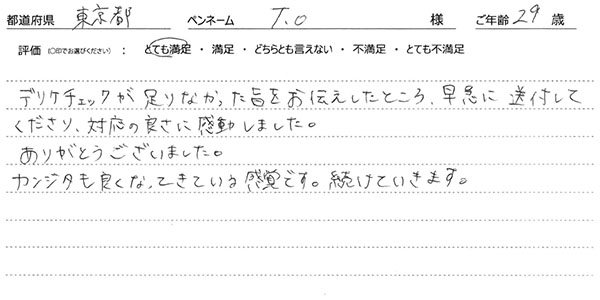 都道府県 東京都 ペンネーム T.O 様 ご年齢 29 歳
評価 (○印でお選びください) : とても満足 ・ 満足 ・ どちらとも言えない ・ 不満足 ・ とても不満足
デリケチェックが足りなかった旨をお伝えしたところ、早急に送付して
くださり、対応の良さに感動しました。
ありがとうございました。
カンジタも良くなってきている感覚です。続けていきます。